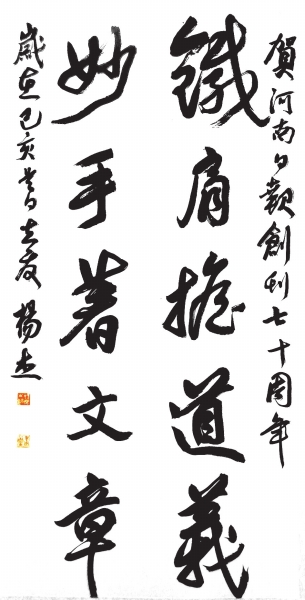 賀河南日報創刊七十周年
鐵肩擔道義
妙手著文章
歲在己亥
楊杰